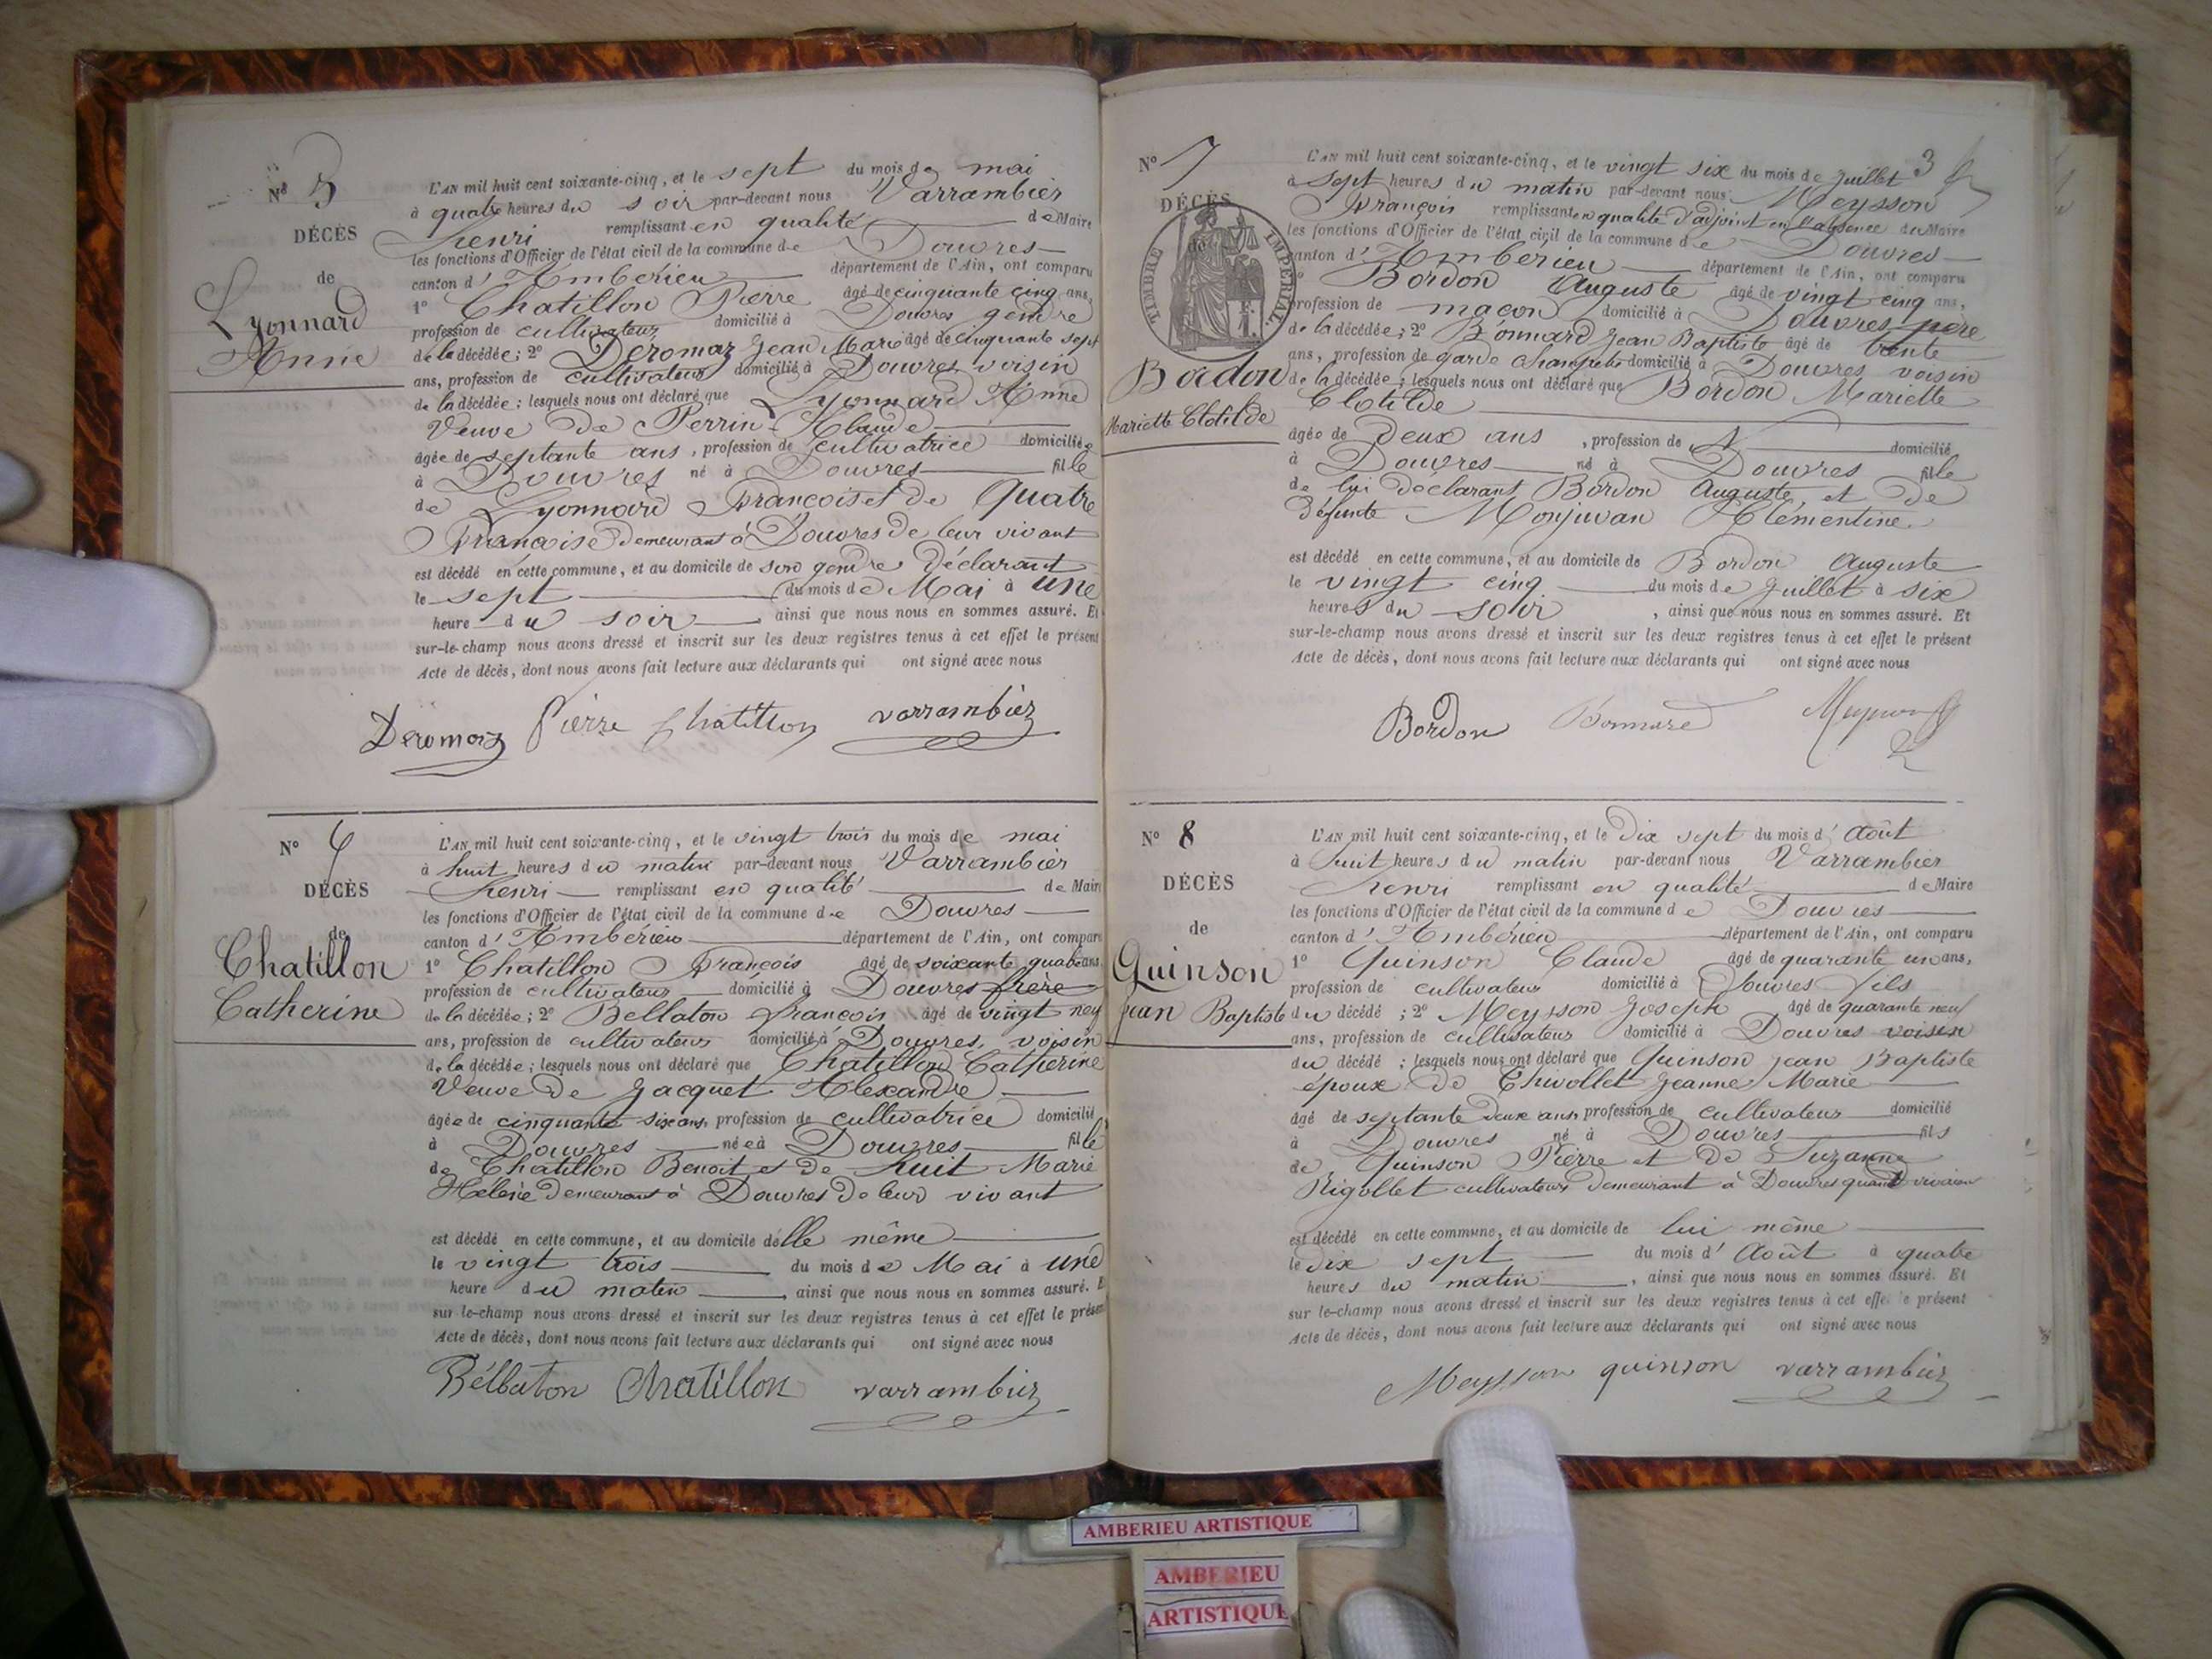 N° 5
DÉCÈS
de
Lyonnard
Anne
L'AN mil huit cent soixante-cinq, et le sept du mois de mai
à quatre heures du soir par-devant nous Varrambier
Henri remplissant en qualité de Maire
les fonctions d'Officier de l'état civil de la commune de Douvres
canton d'Ambérieu département de l'Ain, ont comparu
1° Chatillon Pierre âgé de cinquante cinq ans,
profession de cultivateur domicilié à Douvres gendre
de la décédée; 2° Deromaz Jean Marie âgé de cinquante sept
ans, profession de cultivateur domicilié à Douvres voisin
de la décédée; lesquels nous ont déclaré que Lyonnard Anne
Veuve de Perrin Claude
âgée de septante ans, profession de cultivatrice domiciliée
à Douvres né à Douvres fille
de Lyonnard François et de Quatre
Françoise demeurant à Douvres de leur vivant
est décédé en cette commune, et au domicile de son gendre déclarant
le sept du mois de Mai à une
heure du soir, ainsi que nous nous en sommes assuré. Et
sur-le-champ nous avons dressé et inscrit sur les deux registres tenus à cet effet le présent
Acte de décès, dont nous avons fait lecture aux déclarants qui ont signé avec nous
Deromaz Pierre Chatillon varrambier
N° 6
DÉCÈS
de
Chatillon
Catherine
L'AN mil huit cent soixante-cinq, et le vingt trois du mois de mai
à huit heures du matin par-devant nous Varrambier
Henri remplissant en qualité de Maire
les fonctions d'Officier de l'état civil de la commune de Douvres
canton d'Ambérieu département de l'Ain, ont comparu
1° Chatillon François âgé de soixante quatre ans
profession de cultivateur domicilié à Douvres frère
de la décédée; 2° Bellaton François âgé de vingt neuf
ans, profession de cultivateur domicilié à Douvres, voisin
de la décédée; lesquels nous ont déclaré que Chatillon Catherine
Veuve de Jacquet Alexandre
âgée de cinquante six ans, profession de cultivatrice domicilié
à Douvres née à Douvres fille
de Chatillon Benoit et de Huit Marie
Helene demeurant à Douvres de leur vivant
est décédé en cette commune, et au domicile d'elle même
le vingt trois du mois de Mai à une
heure du matin, ainsi que nous nous en sommes assuré. E
sur-le-champ nous avons dressé et inscrit sur les deux registres tenus à cet effet le présent
Acte de décès, dont nous avons fait lecture aux déclarants qui ont signé avec nous
Béllaton Chatillon varrambier
3
N° 7
DÉCÈS
TIMBRE IMPERIAL
Bordon
Mariette Clotilde
L'AN mil huit cent soixante-cinq, et le vingt six du mois de juillet
à sept heures du matin par-devant nous Meysson
François remplissant en qualité d'adjoint en l'absence du Maire
les fonctions d'Officier de l'état civil de la commune de Douvres
canton d'Ambérieu département de l'Ain, ont comparu
1° Bordon Auguste âgé de vingt cinq ans,
profession de maçon domicilié à Douvres père
de la décédée; 2° Bonnard Jean Baptiste âgé de trente
ans, profession de garde champetre domicilié à Douvres voisin
de la décédée; lesquels nous ont déclaré que Bordon Mariette
Clotilde
âgée de deux ans, profession de domicilié
à Douvres né à Douvres fille
de lui déclarant Bordon Auguste, et de
défunte Monjuvan Clémentine.
est décédé en cette commune, et au domicile de Bordon Auguste
le vingt cinq du mois de juillet à six
heures du soir, ainsi que nous nous en sommes assuré. Et
sur-le-champ nous avons dressé et inscrit sur les deux registres tenus à cet effet le présent
Acte de décès, dont nous avons fait lecture aux déclarants qui ont signé avec nous
Bordon Bonnard Meysson
N° 8
DÉCÈS
de
Quinson
Jean Baptiste
L'AN mil huit cent soixante-cinq, et le Dix sept du mois d'Août
à huit heures du matin par-devant nous Varrambier
Henri remplissant en qualité de Maire
les fonctions d'Officier de l'état civil de la commune de Douvres
canton d'Ambérieu département de l'Ain, ont comparu
1° Quinson Claude âgé de quarante un ans,
profession de cultivateur domicilié à Douvres fils
du décédé; 2° Meysson Joseph âgé de quarante neuf
ans, profession de cultivateur domicilié à Douvres voisin
du décédé; lesquels nous ont déclaré que Quinson Jean Baptiste
époux de Chivollet Jeanne Marie
âgé de septante deux ans profession de cultivateur domicilié
à Douvres né à Douvres fils
de Quinson Pierre et de Suzanne
Rigollet cultivateurs demeurant à Douvres quand vivaient
est décédé en cette commune, et au domicile de lui même
le Dix sept du mois d'Août à quatre
heures du matin, ainsi que nous nous en sommes assuré. Et
sur le-champ nous avons dressé et inscrit sur les deux registres tenus à cet effet le présent
Acte de décès, dont nous avons fait lecture aux déclarants qui ont signé avec nous
Meysson quinson varrambier
AMBERIEU ARTISTIQUE
AMBERIEU
ARTISTIQUE